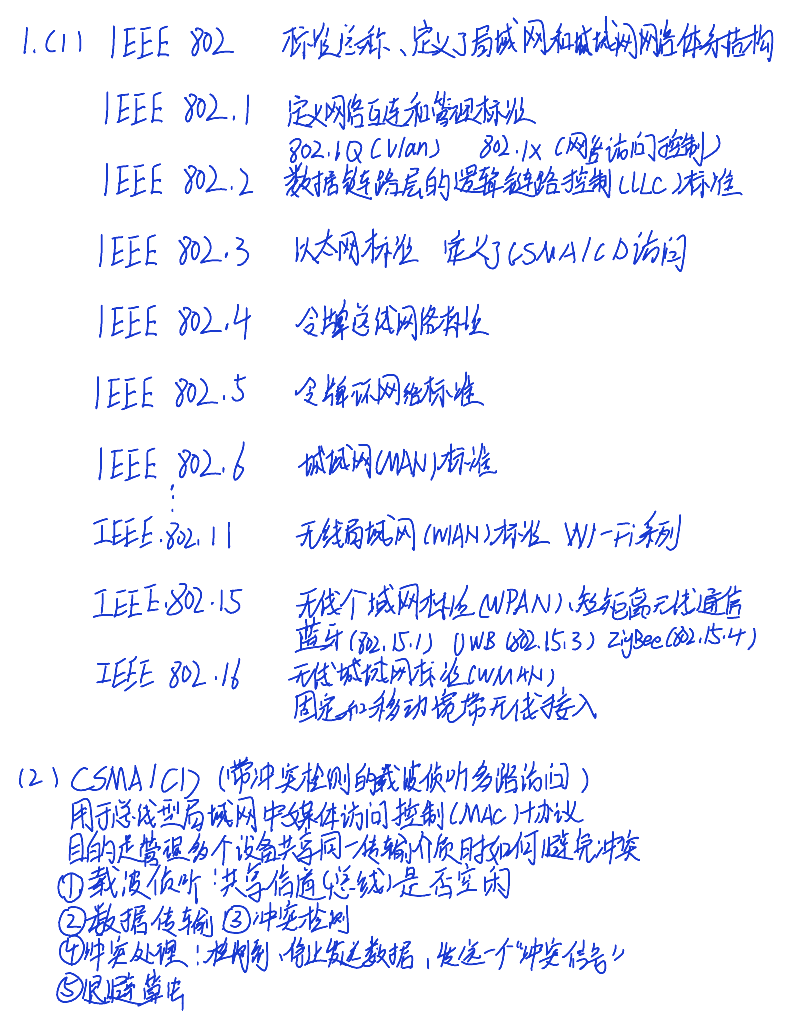 1.(1) IEEE 802 标准总称、定义了局域网和城域网网络体系结构
IEEE 802.1 定义网络互连和管理标准
802.1Q(Vlan) 802.1x(网络访问控制)
IEEE 802.2 数据链路层的逻辑链路控制(LLC)标准
IEEE 802.3 以太网标准 定义了CSMA/CD访问
IEEE 802.4 令牌总线网络标准
IEEE 802.5 令牌环网络标准
IEEE 802.6 城域网(MAN)标准
⋮
IEEE.802.11 无线局域网(WlAN)标准 WI-Fi系列
IEEE.802.15 无线个域网标准(WPAN)、短距离无线通信
蓝牙(802.15.1) UWB(802.15.3) ZigBee(802.15.4)
IEEE 802.16 无线城域网标准(WMAN)
固定和移动宽带无线接入
(2) CSMA/CD (带冲突检测的载波侦听多路访问)
用于总线型局域网中媒体访问控制(MAC)协议
目的是管理多个设备共享同一传输介质时如何避免冲突
①载波侦听:共享信道(总线)是否空闲
②数据传输 ③冲突检测
④冲突处理:检测到,停止发送数据,发送一个“冲突信号”
⑤退避算法